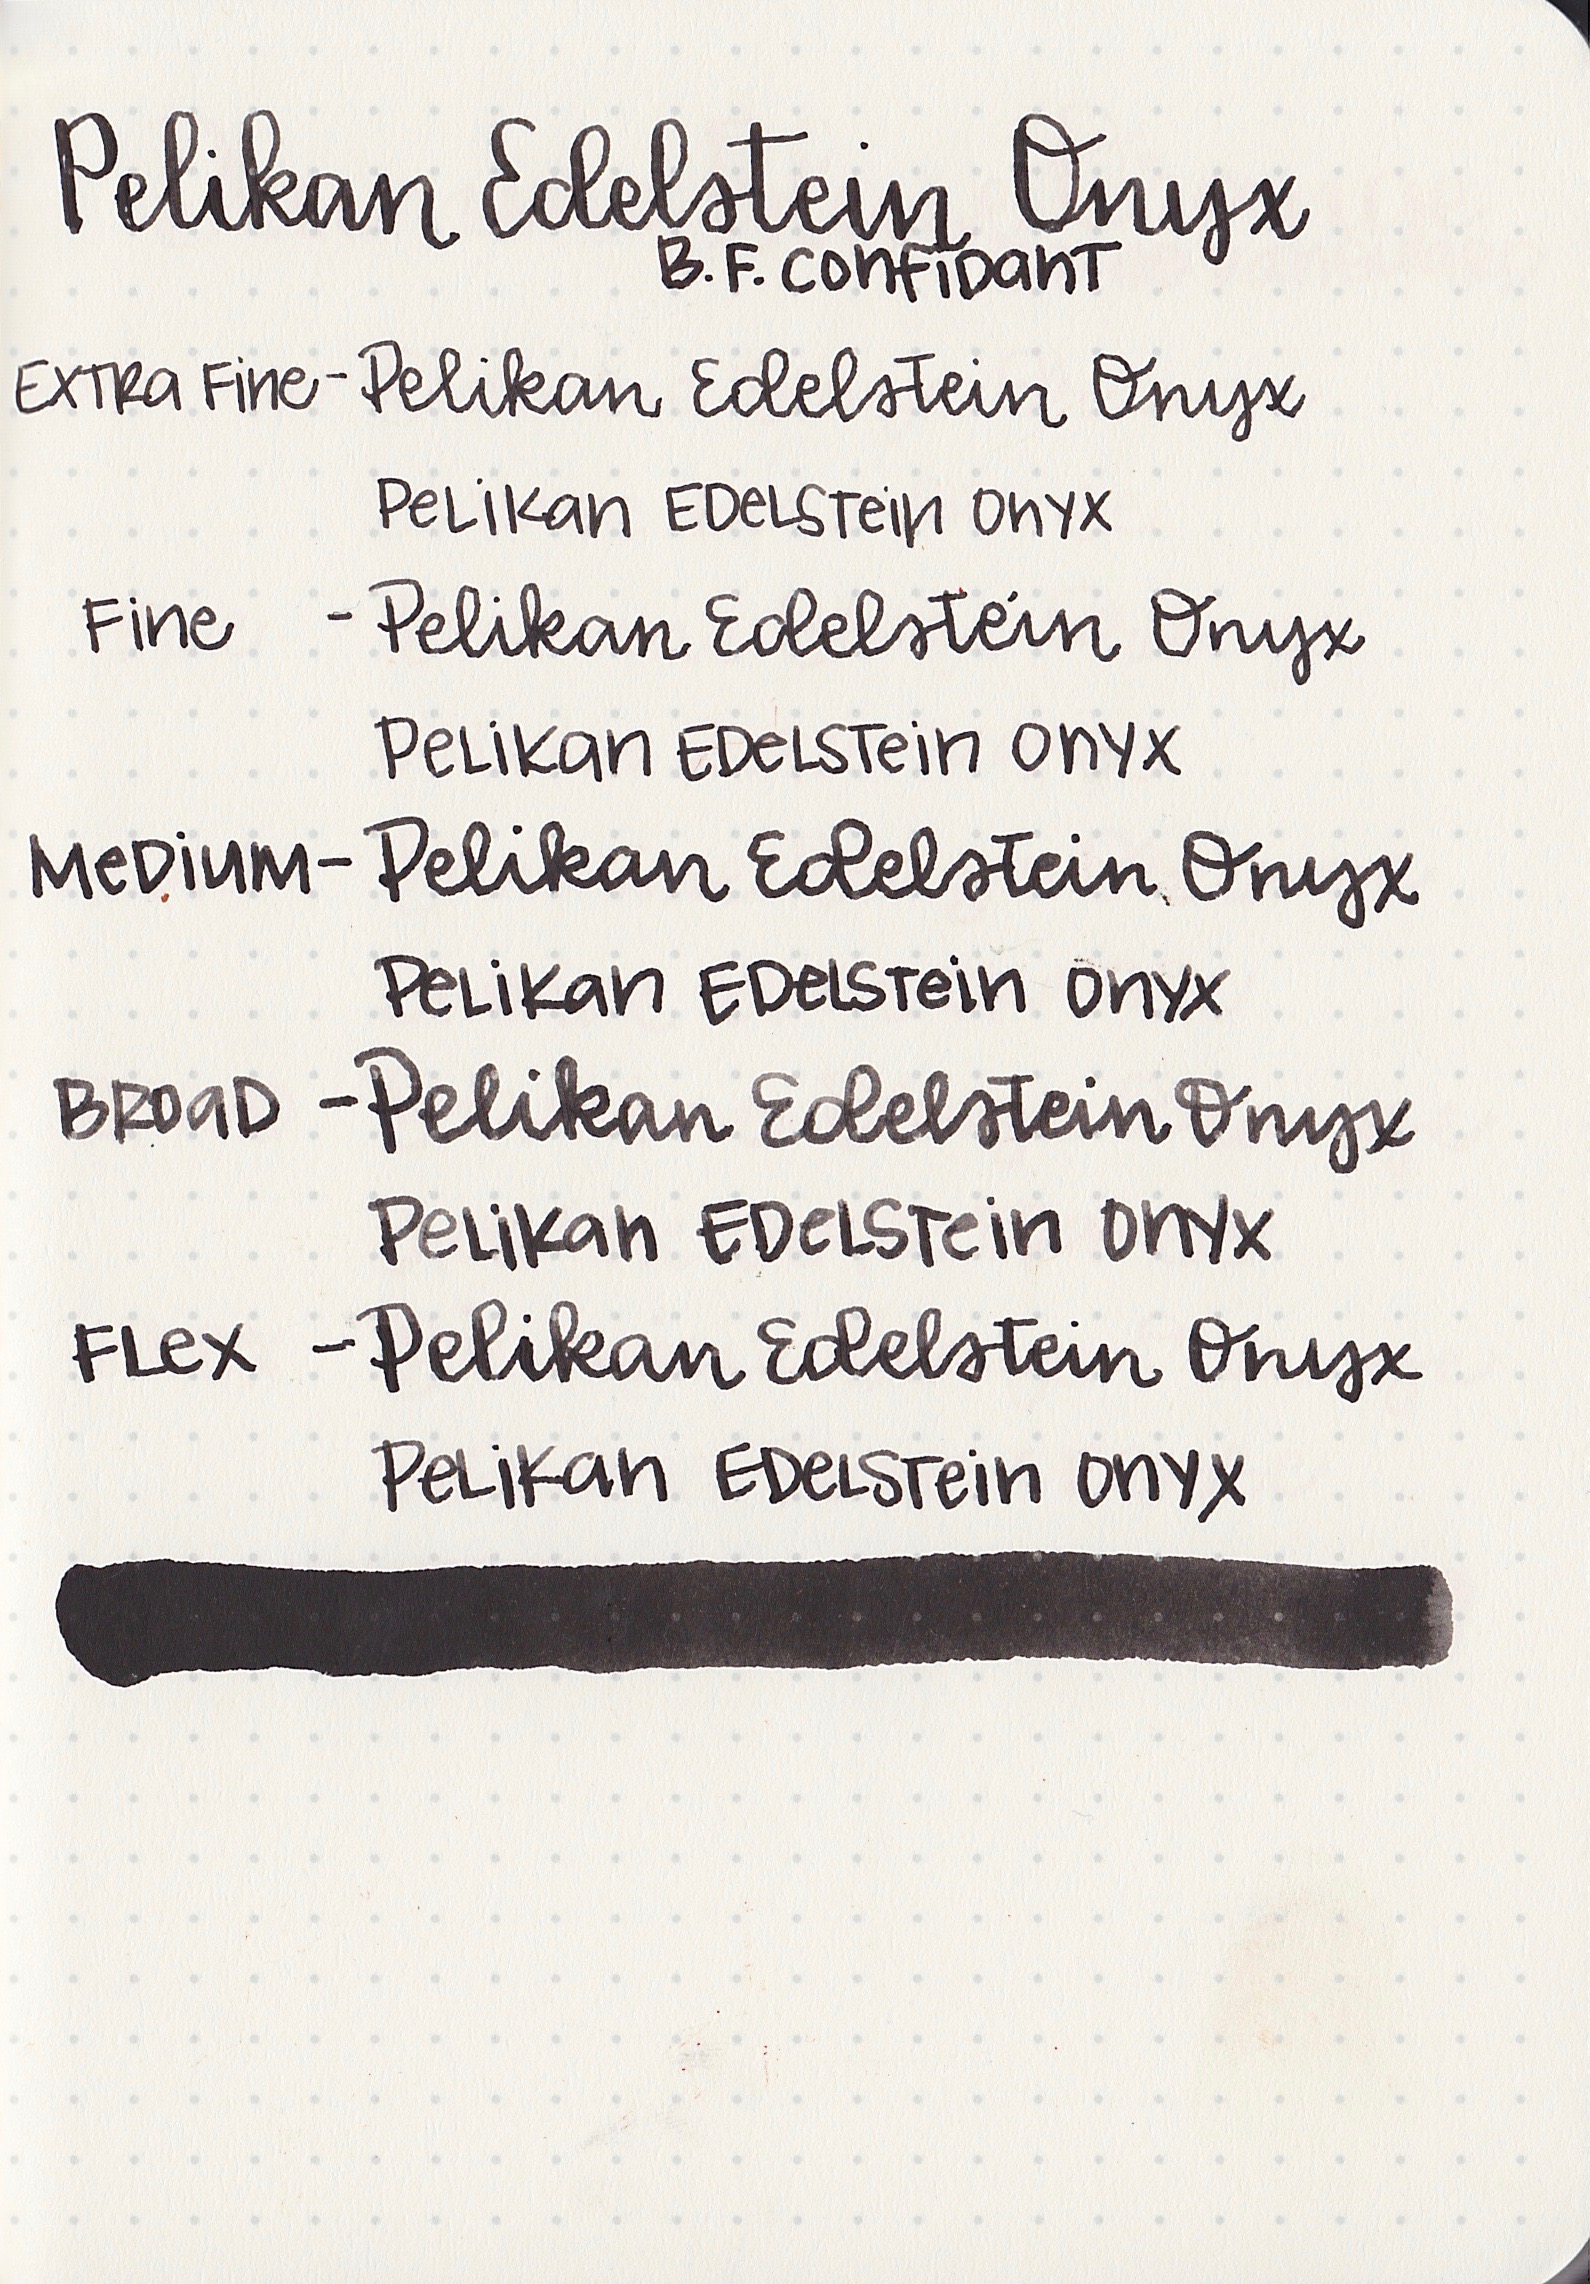 Pelikan Edelstein Onyx
B.F. Confidant
Extra Fine - Pelikan Edelstein Onyx
Pelikan Edelstein Onyx
Fine - Pelikan Edelstein Onyx
Pelikan Edelstein Onyx
Medium - Pelikan Edelstein Onyx
Pelikan Edelstein Onyx
Broad - Pelikan Edelstein Onyx
Pelikan Edelstein Onyx
Flex - Pelikan Edelstein Onyx
Pelikan Edelstein Onyx